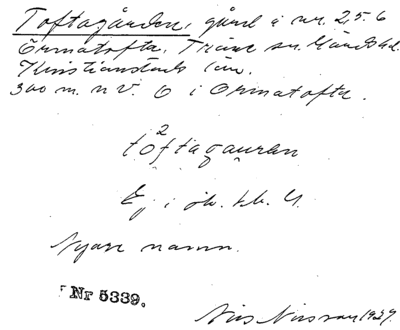 Toftagården, gård i nr. 2, 5. 6
Örmatofta, Träne sn. 
Kristianstads län.
300 m. n V. 6 i Örmatofta.
2
toftagauran
Ej i jb. kb. G.
Nyare namn.
Nr 5339.
Nils Nilsson 1929.